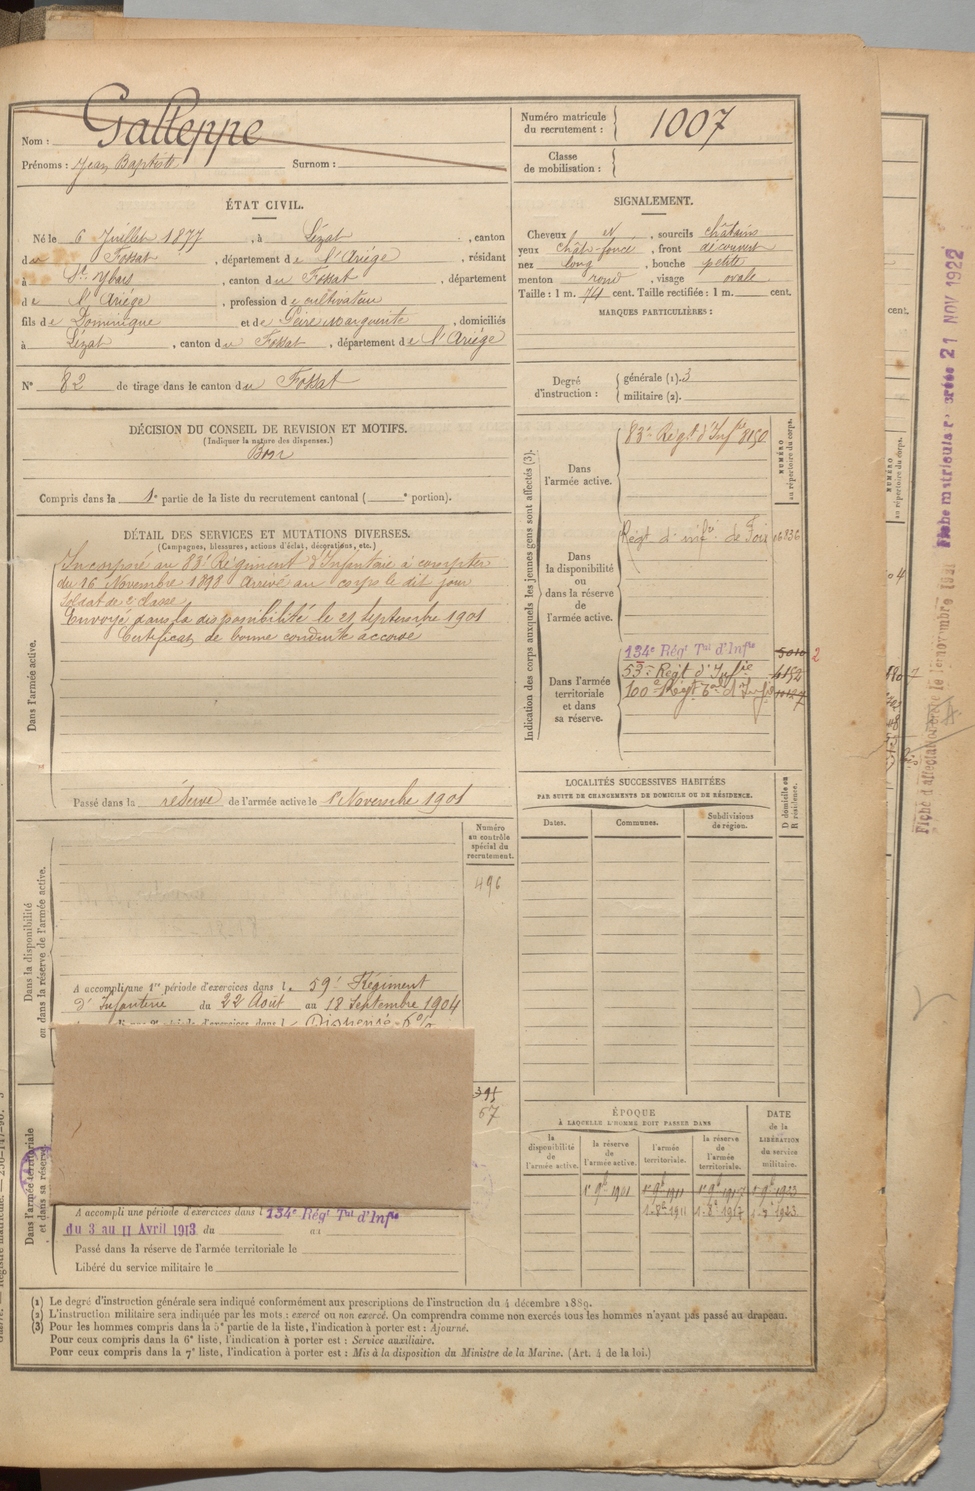 Nom : Galleppe
Prénoms : Jean Baptiste Surnom :
Numéro matricule du recrutement : 1007
Classe de mobilisation :
ÉTAT CIVIL.
Né le 6 Juillet 1877, à Lézat, canton
du Fossat, département de l'Ariège, résidant
à St Ybars, canton du Fossat, département
de l'Ariège, profession de cultivateur
fils de Dominique et de Seire Marguerite, domiciliés
à Lézat, canton du Fossat, département de l'Ariège
N° 82 de tirage dans le canton du Fossat
SIGNALEMENT.
Cheveux N, sourcils châtains
yeux chât-foncé, front découvert
nez long, bouche petite
menton rond, visage ovale
Taille : 1 m. 74 cent. Taille rectifiée : 1 m. cent.
MARQUES PARTICULIÈRES :
Degré d'instruction : générale (1). 3
militaire (2).
DÉCISION DU CONSEIL DE REVISION ET MOTIFS.
(Indiquer la nature des dispenses.)
Bon
Compris dans la 1e partie de la liste du recrutement cantonal ( e portion).
DÉTAIL DES SERVICES ET MUTATIONS DIVERSES.
(Campagnes, blessures, actions d'éclat, décorations, etc.)
Dans l'armée active.
Incorporé au 83e Régiment d'Infanterie à compter
du 16 Novembre 1898 Arrivé au corps le dit jour
Soldat de 2e classe
Envoyé dans la disponibilité le 21 septembre 1901
Certificat de bonne conduite accordé
Passé dans la réserve de l'armée active le 1er Novembre 1901
Indication des corps auxquels les jeunes gens sont affectés (3).
NUMÉRO au répertoire du corps.
Dans l'armée active.
83e Régt d'Infie 8150
Dans la disponibilité ou dans la réserve de l'armée active.
Régt d'infie de Foix 16836
Dans l'armée territoriale et dans sa réserve.
134e Régt Tal d'Infie 5010 2
53e Régt d'Infie 4152
100e Régt Tal d'Inf.
LOCALITÉS SUCCESSIVES HABITÉES
PAR SUITE DE CHANGEMENTS DE DOMICILE OU DE RÉSIDENCE.
Dates.
Communes.
Subdivisions de région.
D domicile ou R résidence.
Dans la disponibilité ou dans la réserve de l'armée active.
Numéro au contrôle spécial du recrutement.
496
A accompli une 1re période d'exercices dans l. 59e Régiment
d'Infanterie du 22 Août au 18 Septembre 1904
période d'exercices dans l Dispensé
395
67
Dans l'armée territoriale et dans sa réserve
A accompli une période d'exercices dans l 134e Régt Tal d'Infie
du 3 au 11 Avril 1913 du au
Passé dans la réserve de l'armée territoriale le
Libéré du service militaire le
ÉPOQUE
À LAQUELLE L'HOMME DOIT PASSER DANS
la disponibilité de l'armée active.
la réserve de l'armée active.
l'armée territoriale.
la réserve de l'armée territoriale.
DATE de la LIBÉRATION du service militaire.
1er 9bre 1901 1er 9bre 1911 1er 9bre 1917 1er 9bre 1923
1-8bre 1911 1-8bre 1917 1923
(1) Le degré d'instruction générale sera indiqué conformément aux prescriptions de l'instruction du 4 décembre 1889.
(2) L'instruction militaire sera indiquée par les mots : exercé ou non exercé. On comprendra comme non exercés tous les hommes n'ayant pas passé au drapeau.
(3) Pour les hommes compris dans la 5e partie de la liste, l'indication à porter est : Ajourné.
Pour ceux compris dans la 6e liste, l'indication à porter est : Service auxiliaire.
Pour ceux compris dans la 7e liste, l'indication à porter est : Mis à la disposition du Ministre de la Marine. (Art. 4 de la loi.)
cent.
NUMÉRO au répertoire du corps.
Fiche matricule 21 NOV 1922
Fiche d'affectation novembre 1921